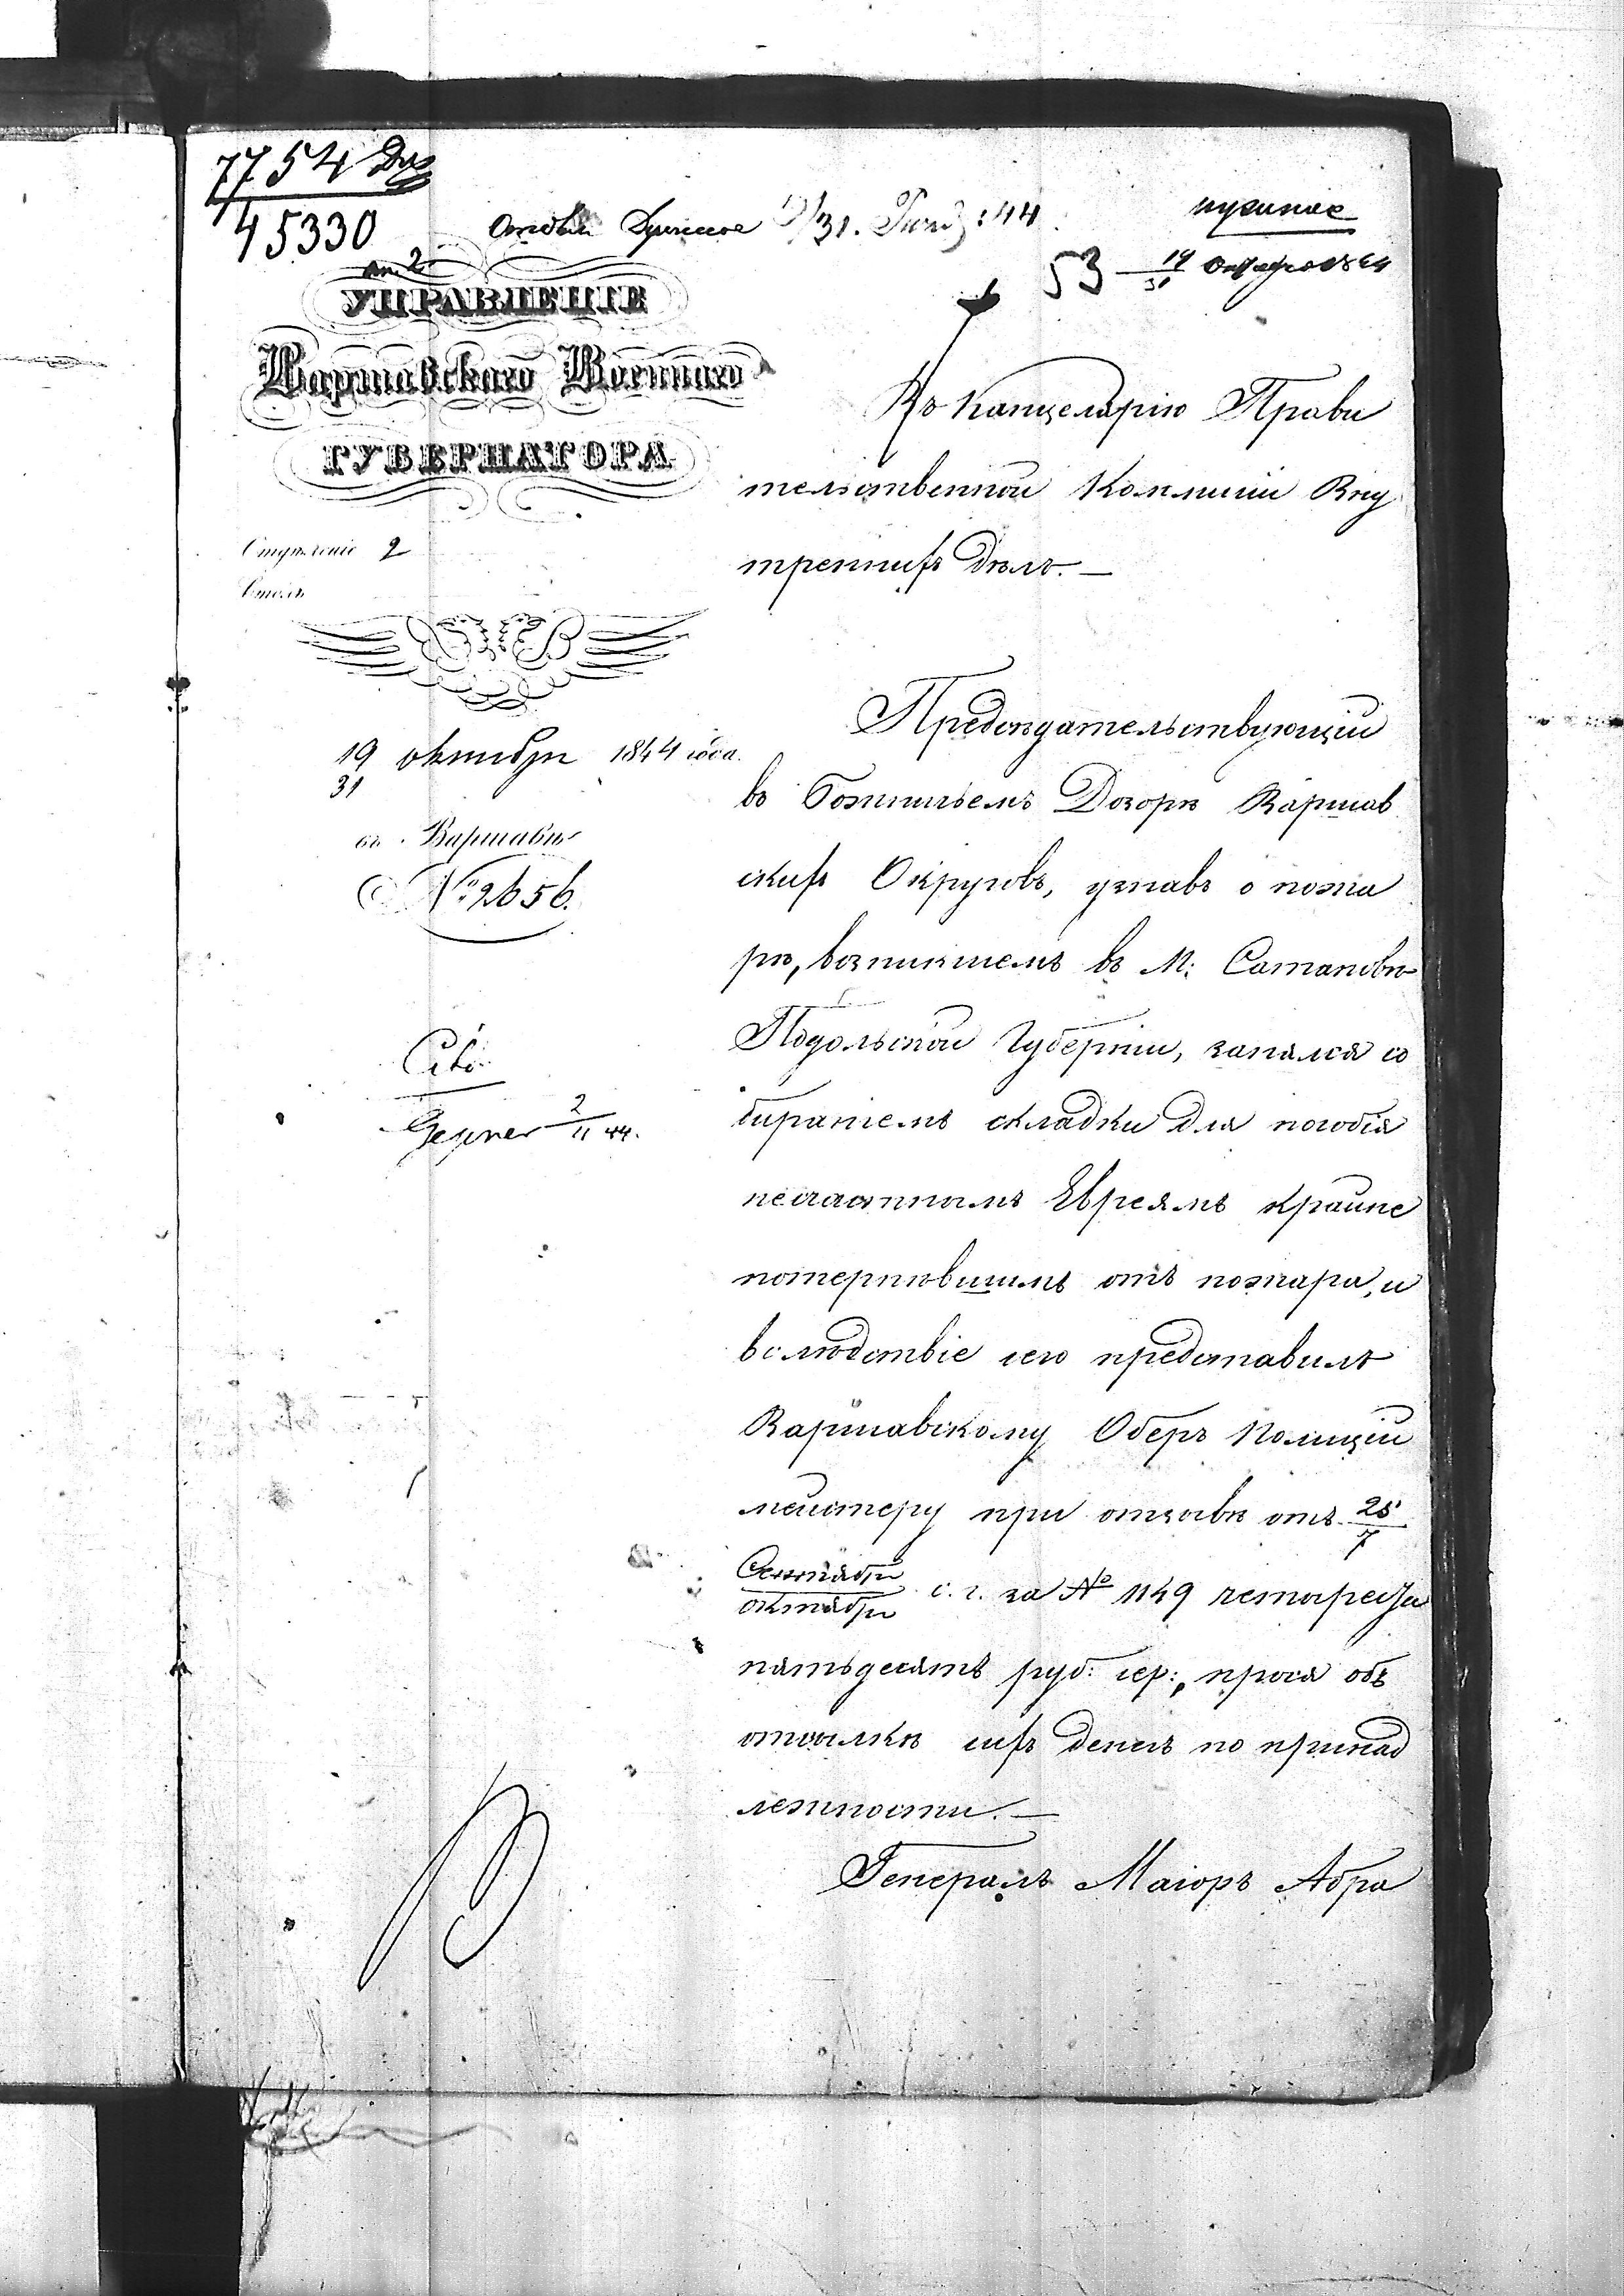 7754
45330
УПРАВЛЕНІЕ
Варшавскаго Военнаго
ГУБЕРНАТОРА
Отдѣленіе 2
Столъ
19 октября 1844 года.
31
въ Варшавѣ
№ 2656.
Cito
2
11 44.
31. :44
53 19
31
Въ Канцелярію Прави
тельственной Коммисіи Вну
треннихъ Дѣлъ. —
Предсѣдательствующій
въ Божничьемъ Дозорѣ Варшав
скихъ Округовъ, узнавъ о пожа
рѣ, возникшемъ въ М: Сатановѣ
Подольской Губерніи, занялся со
бираніемъ складки для пособія
несчастнымъ Евреямъ крайне
потерпѣвшимъ отъ пожара, и
вслѣдствіе сего представилъ
Варшавскому Оберъ Полиціи
мейстеру при отзывѣ отъ 25
7
Сентября
октября с. г. за № 1149 четыреста
пятьдесятъ руб: сер:, прося объ
отсылкѣ сихъ денегъ по принад
лежности. —
Генералъ Маіоръ Абра